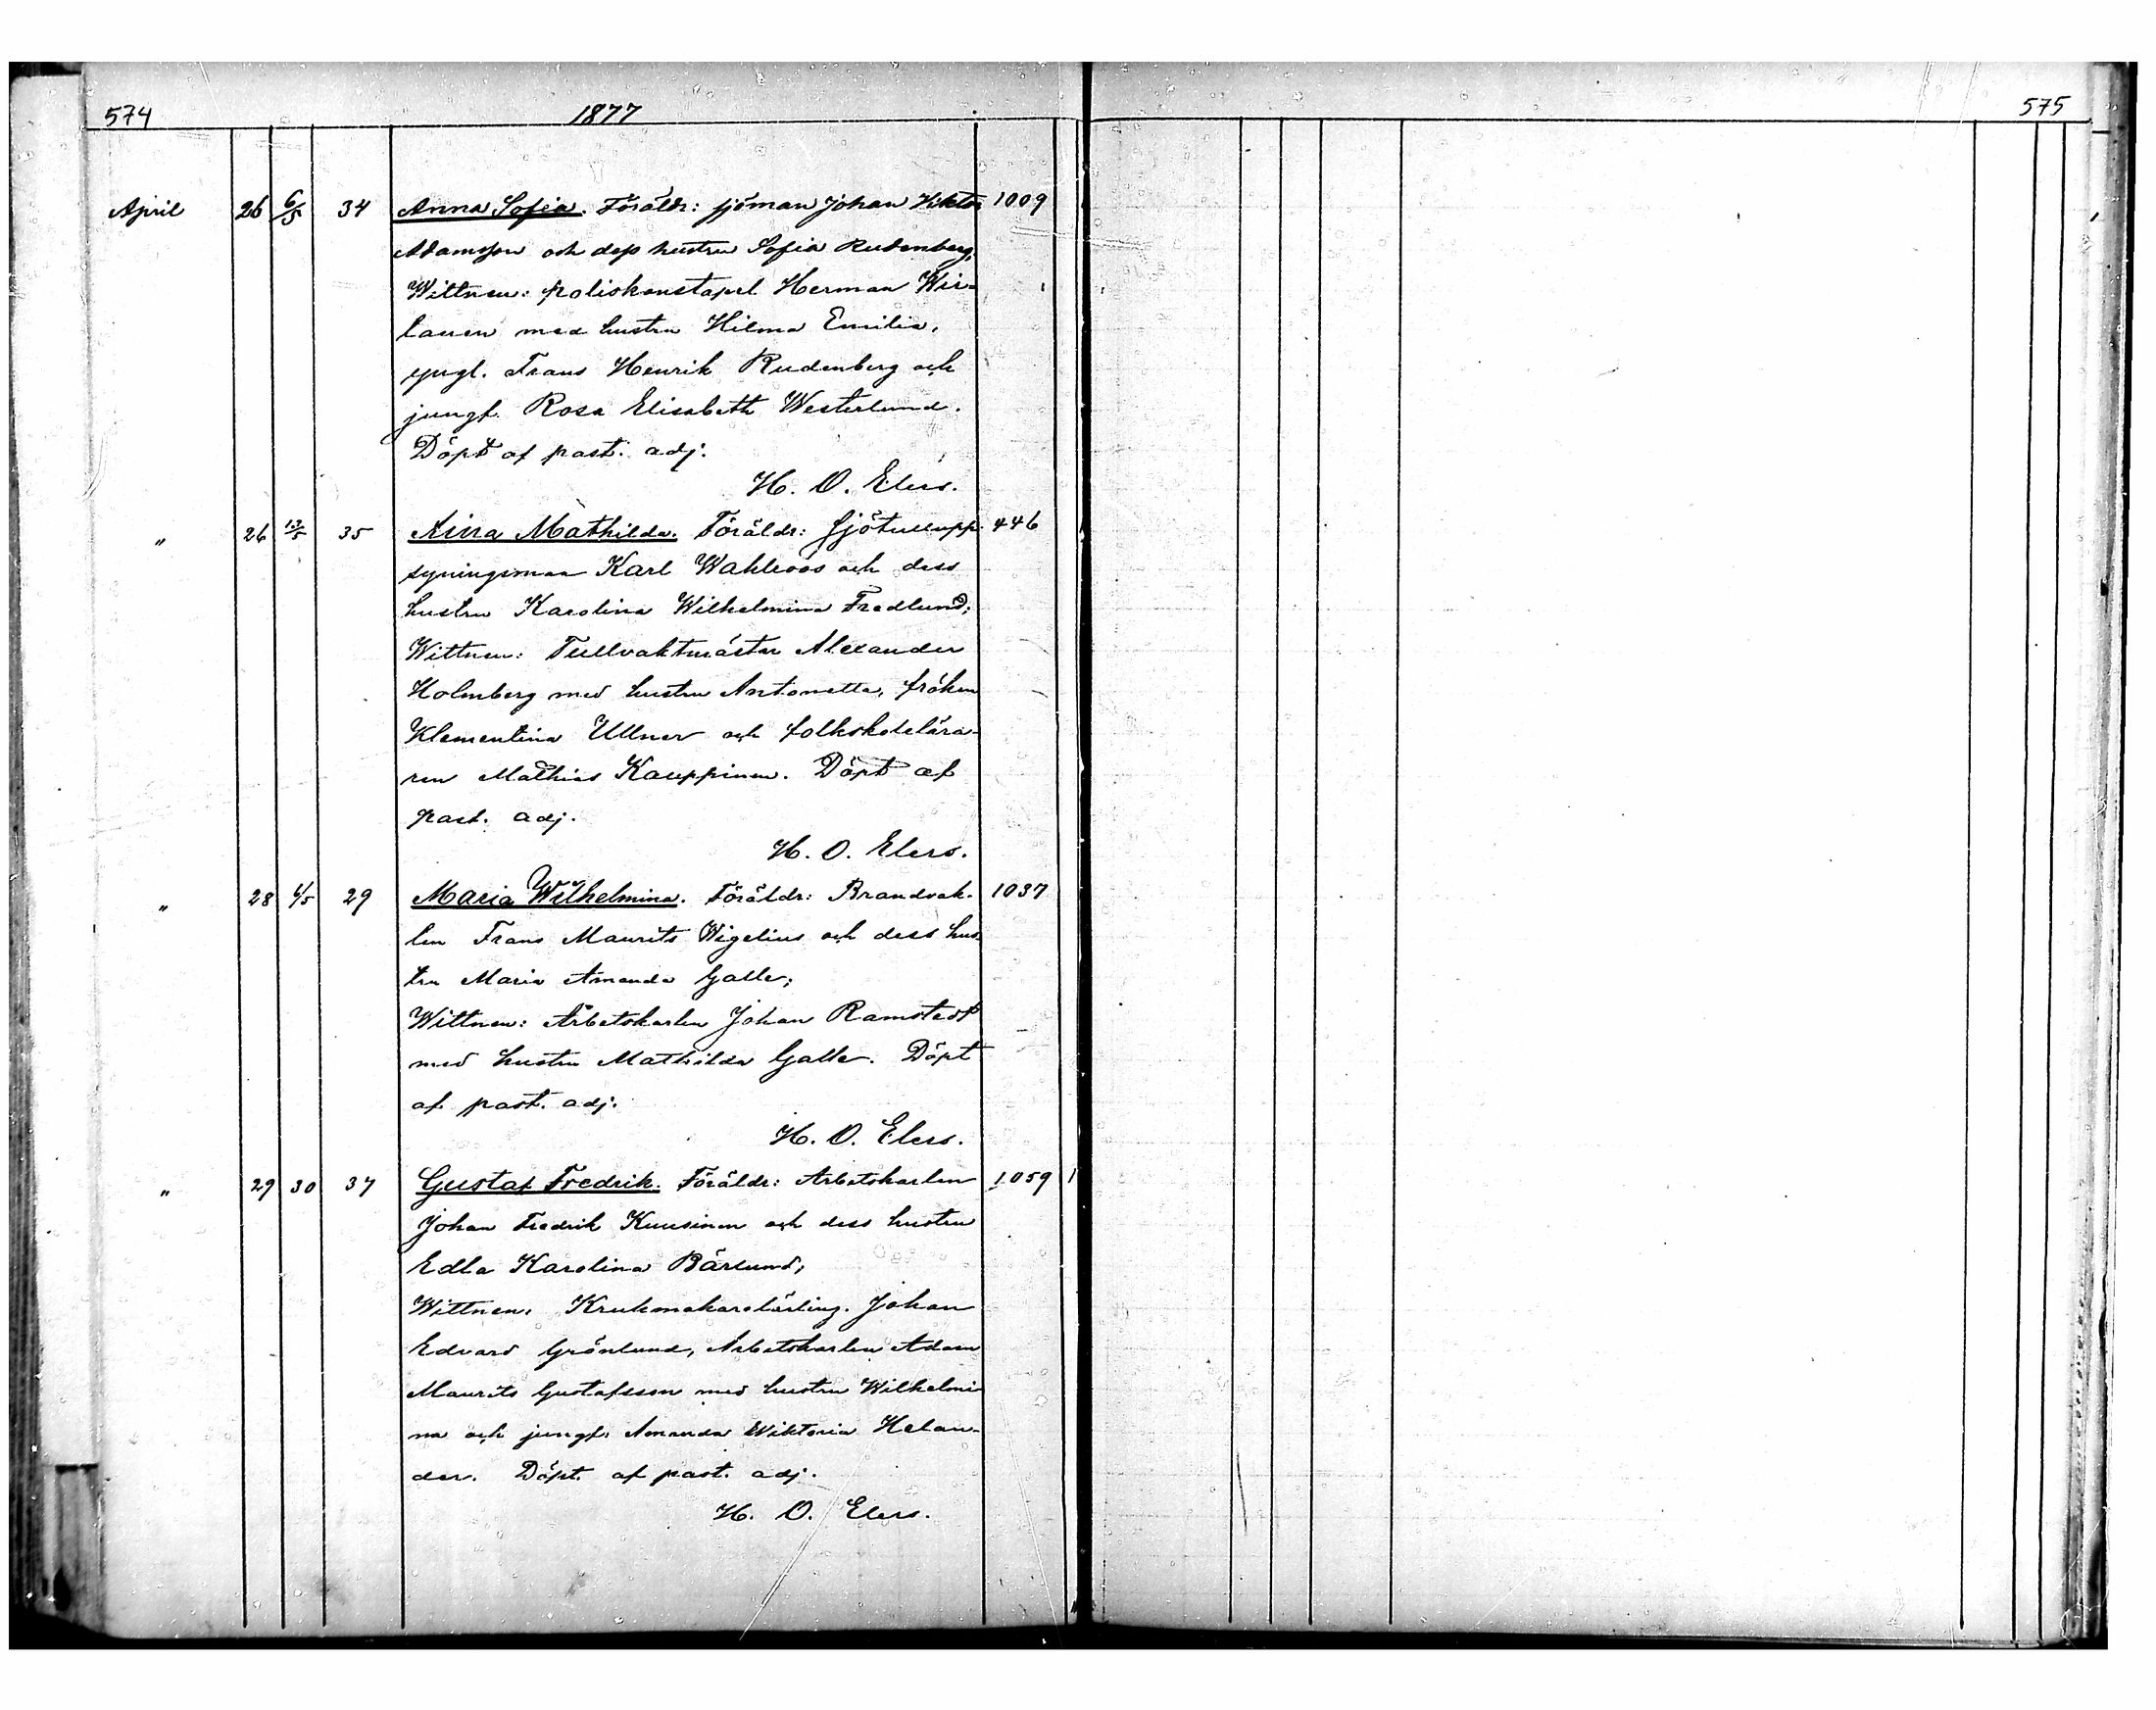 574 1877
April 26 6/5 34 Anna Sofia. Föräldr: sjöman Johan Viktor 1009
Adamsson och dess hustru Sofia Rudenberg,
Wittnen: poliskonstapel Herman Wir-
lanen med hustru Hilma Emilia,
yngl. Frans Henrik Rudenberg och
jungf. Rosa Elisabeth Westerlund.
Döpt af past. adj.
H. O. Elers.
" 26 13/5 35 Aina Mathilda. Föräldr: Sjötullupp- 446
syningsman Karl Wahlroos och dess
hustru Karolina Wilhelmina Fredlund;
Wittnen: Tullvaktmästar Alexander
Holmberg med hustru Antonetta, fröken
Klementina Ullner och folkskolelära-
ren Mathias Kauppinen. Döpt af
past. adj.
H. O. Elers.
" 28 6/5 29 Maria Wilhelmina. Föräldr: Brandvak- 1037
ten Frans Maurits Wigelius och dess hus-
tru Maria Amanda Galle;
Wittnen: Arbetskarlen Johan Ramstedt
med hustru Mathilda Galle. Döpt
af past. adj.
H. O. Elers.
" 29 30 37 Gustaf Fredrik. Föräldr: Arbetskarlen 1059 1
Johan Fredrik Kuusinen och dess hustru
Edla Karolina Bärlund;
Wittnen: Krukmakarelärling. Johan
Edvard Grönlund, Arbetskarlen Adam
Maurits Gustafsson med hustru Wilhelmi-
na och jungf. Amanda Wiktoria Helan-
der. Döpt. af past. adj.
H. O. Elers.
575